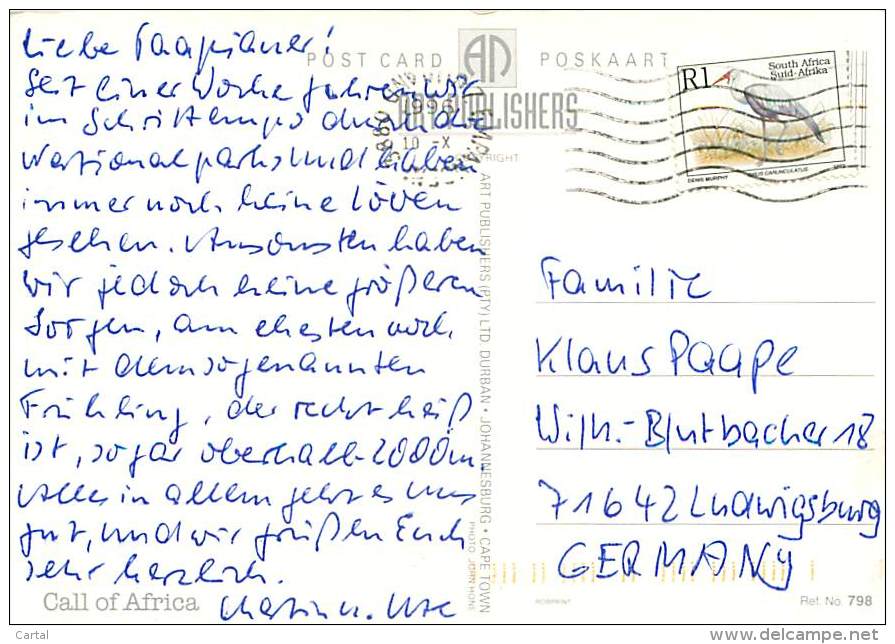 Liebe Paapianer!
Seit einer Woche fahren wir
im Schrittempo durch die
Nationalparks und haben
immer noch keine Löwen
gesehen. Ansonsten haben
wir jedoch keine größeren
Sorgen, am ehesten noch
mit dem sogenannten
Frühling, der recht heiß
ist, sogar oberhalb 2000m.
Alles in allem geht es uns
gut, und wir grüßen Euch
sehr herzlich.
Martin u. Ute
Call of Africa
POST CARD
POSKAART
ART PUBLISHERS
1996
10 X
ART PUBLISHERS (PTY) LTD. DURBAN • JOHANNESBURG • CAPE TOWN
PHOTO: JOHN HONE
R1
South Africa
Suid-Afrika
DENIS MURPHY
GRUS CARUNCULATUS
Familie
Klaus Paape
Wilh.-Blutbacher 18
71642 Ludwigsburg
GERMANY
ROBPRINT
Ref. No. 798
Cartal
www.delcampe.net